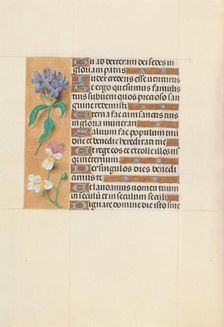 Tu ad dexteram dei sedes in
gloria patris
Iudex crederis esse venturus
Te ergo quesumus famulis
tuis subveni quos precioso san
guine redemisti
Eterna fac cum sanctis tuis
gloria munerari
Salvum fac populum tuu
dne et benedic hereditati tue
Et rege eos et extolle illos us
que in eternum
Per singulos dies benedi
camus te
Et laudamus nomen tuum
in seculum et in seculum seculi
Dignare domine die isto sine